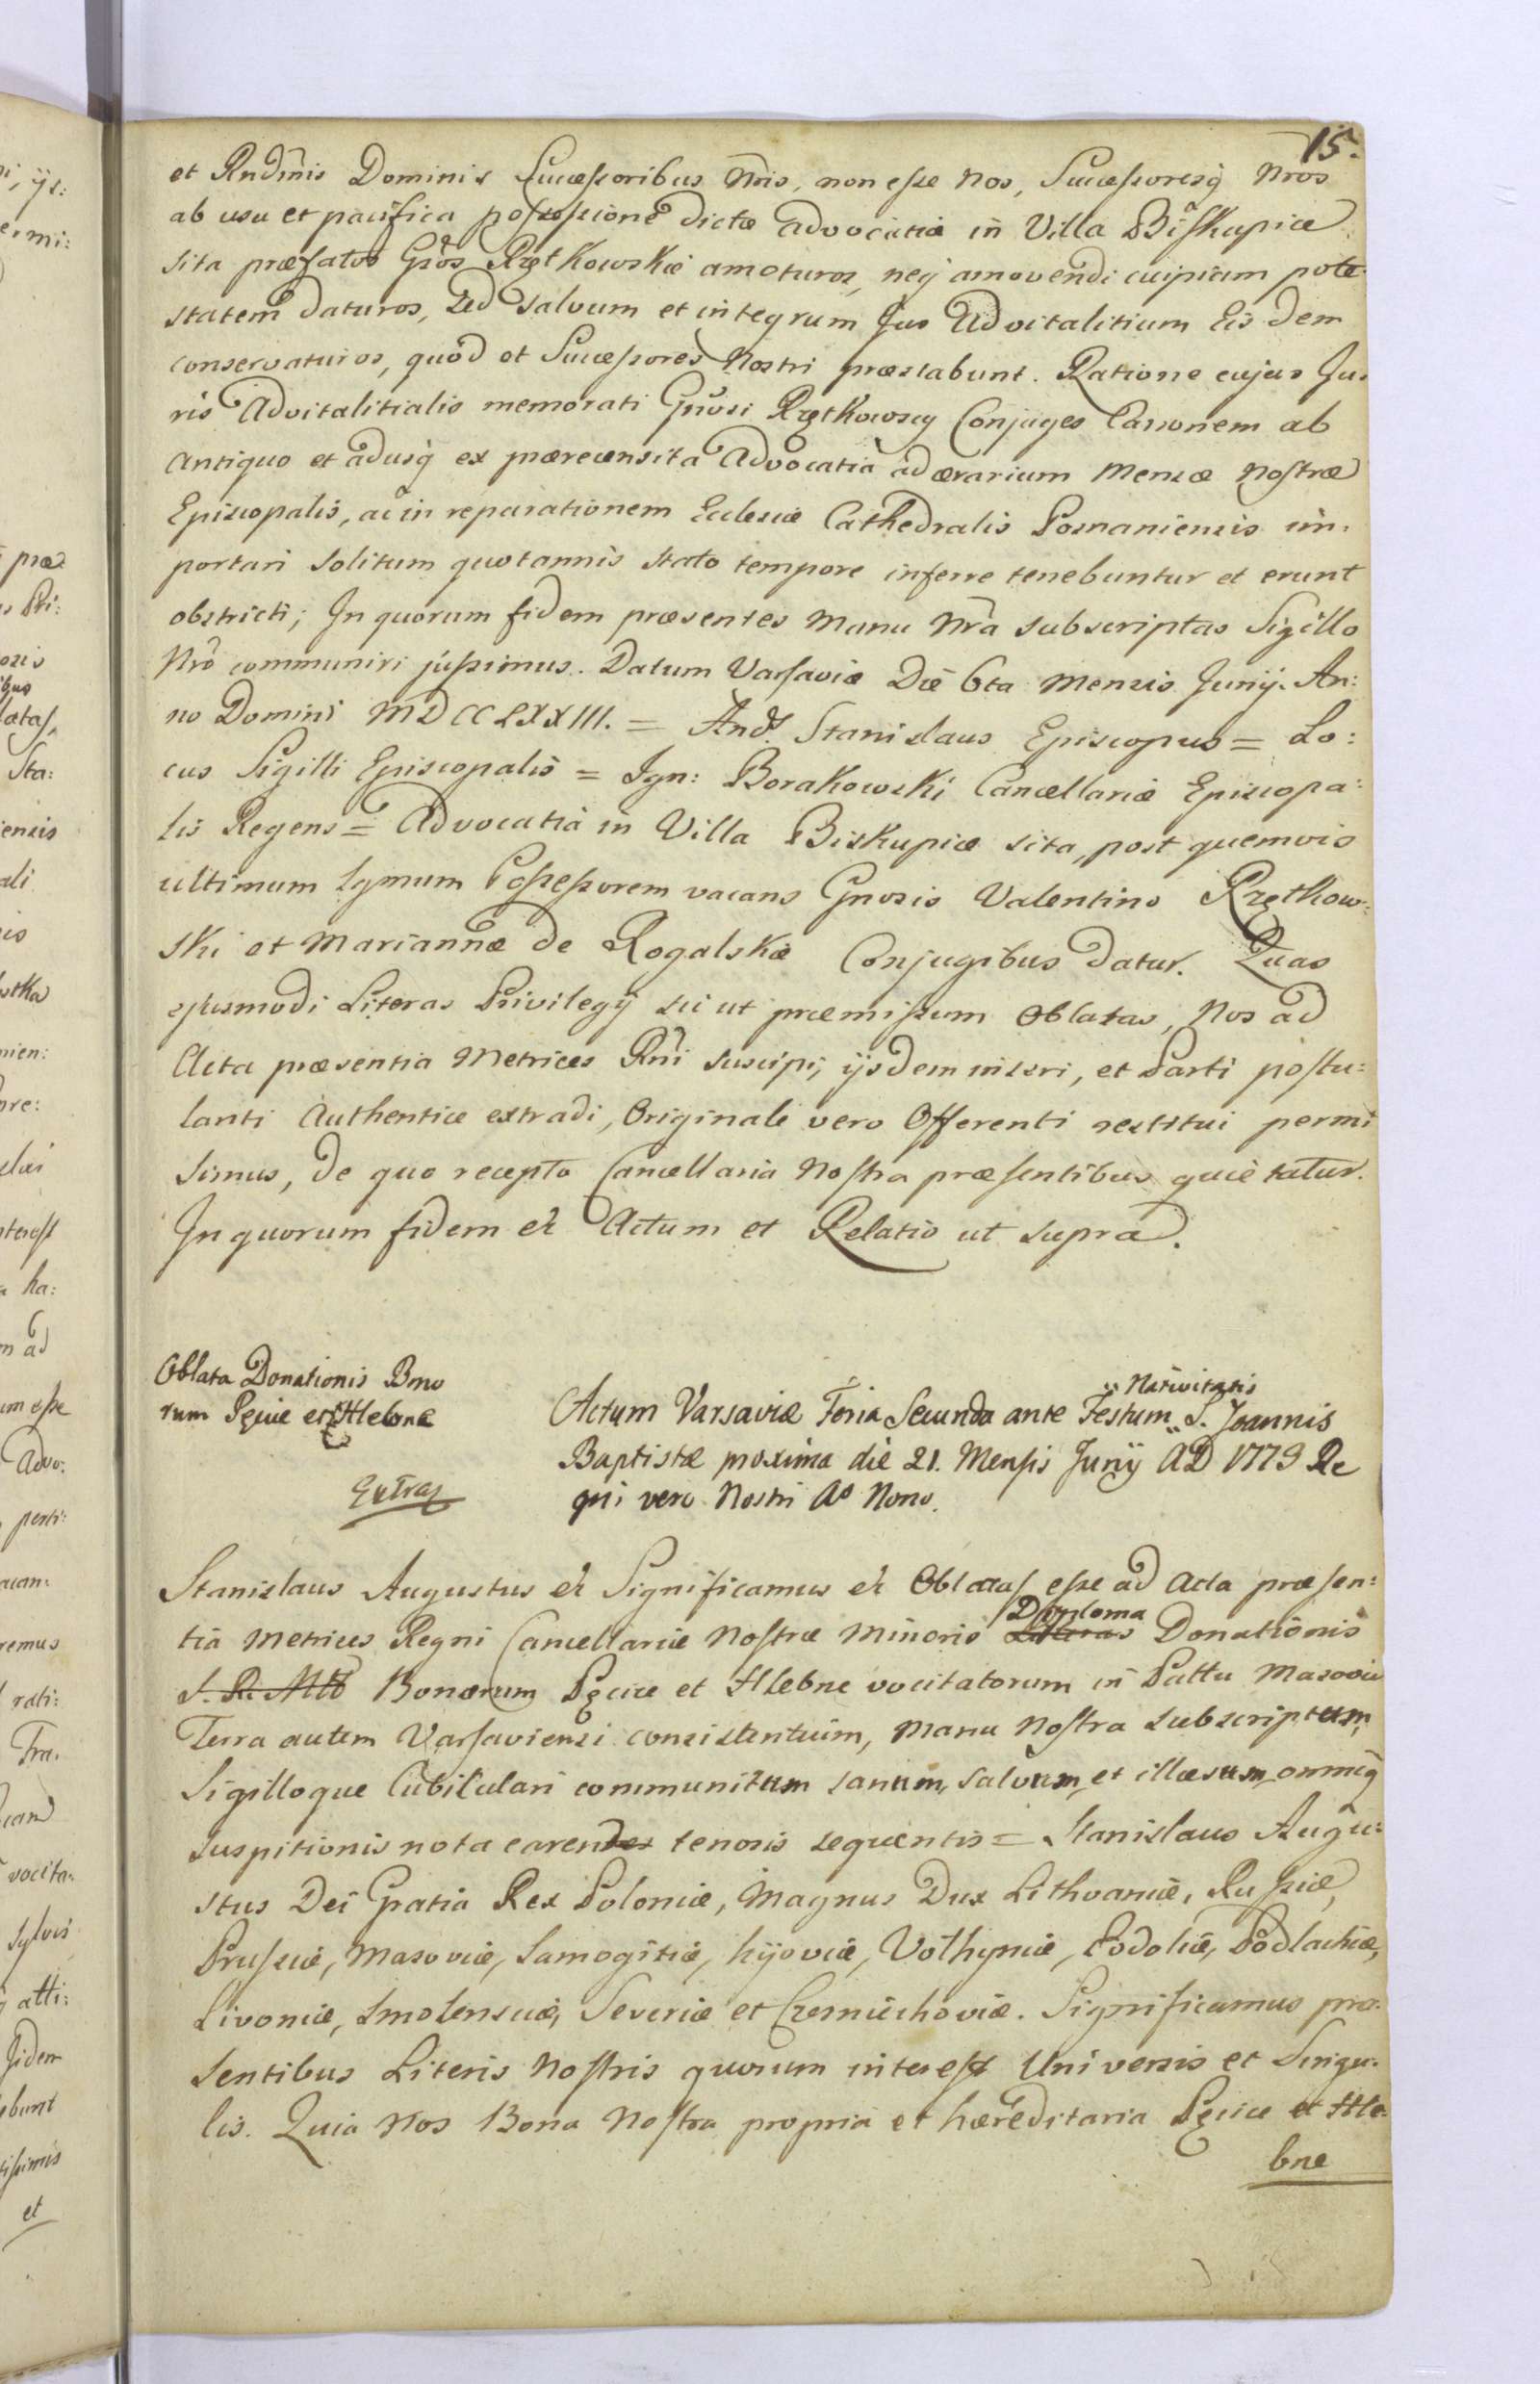 15.
et Rndmis Dominis Successoribus Nris, non esse Nos, Successoresq̃ Nros
ab usu et pacifica possessione dictæ Advocatiæ in Villa Biskupice
sita præfatos Gsos Rzętkowskie amoturos, neq̃ amovendi cuipiam pote:
statem daturos, sed salvum et integrum Jus Advitalitium Eisdem
conservaturos, quod et Successores Nostri præstabunt. Ratione cujus Ju:
ris Advitalitialis memorati Gnosi Rzętkowscy Conjuges Canonem ab
antiquo et adusq̃ ex prærecensita Advocatia ad ærarium Mensæ Nostræ
Episcopalis, ac in reparationem Ecclesiæ Cathedralis Posnaniensis im:
portari solitum quotannis stato tempore inferre tenebuntur et erunt
obstricti; In quorum fidem præsentes Manu Nra subscriptas Sigillo
Nro communiri jussimus. Datum Varsaviæ Die 6ta Mensis Junij. An:
no Domini MDCCLXXIII. = Ands. Stanislaus Episcopus = Lo:
cus Sigilli Episcopalis = Ign: Borakowski Cancellariæ Episcopa:
lis Regens = Advocatia in Villa Biskupice sita, post quemvis
ultimum Lgmum Possessorem vacans Gnosis Valentino Rzętkow:
ski et Mariannæ de Rogalskie Conjugibus datur. Quas
ejusmodi Literas Privilegij sic ut præmissum Oblatas, Nos ad
Acta præsentia Metrices Rni suscipi, ijsdem inseri, et Parti postu:
lanti Authentice extradi, Originale vero Offerenti restitui permi
simus, de quo recepto Cancellaria Nostra præsentibus quietatur.
In quorum fidem et Actum et Relatio ut supra.
Oblata Donationis Bono
rum Pęcice et Hlebne
Extras
Nativitatis
Actum Varsaviæ Feria Secunda ante Festum S. Joannis
Baptistæ proxima die 21. Mensis Junij AD 1773 Re
gni vero Nostri Ao Nono.
Stanislaus Augustus et Significamus et Oblatas esse ad Acta præsen:
Diploma
tia Metrices Regni Cancellariæ Nostræ Minoris Literas Donationis
S. R. Mtis Bonorum Pęcice et Hlebne vocitatorum in Pattu Masoviæ
Terra autem Varsaviensi consistentium, Manu Nostra subscriptum,
Sigilloque Cubiculari communitum sanum, salvum, et illæsum, omniq̃
suspitionis nota carendes tenoris sequentis = Stanislaus Augu:
stus Dei Gratia Rex Poloniæ, Magnus Dux Lithvaniæ, Russiæ,
Prussiæ, Masoviæ, Samogitiæ, Kijoviæ, Volhyniæ, Podoliæ, Podlachiæ,
Livoniæ, Smolensciæ, Severiæ et Czerniechoviæ. Significamus præ:
sentibus Literis Nostris quorum interest Universis et Singu:
lis. Quia Nos Bona Nostra propria et hæreditaria Pęcice et Hle:
bne